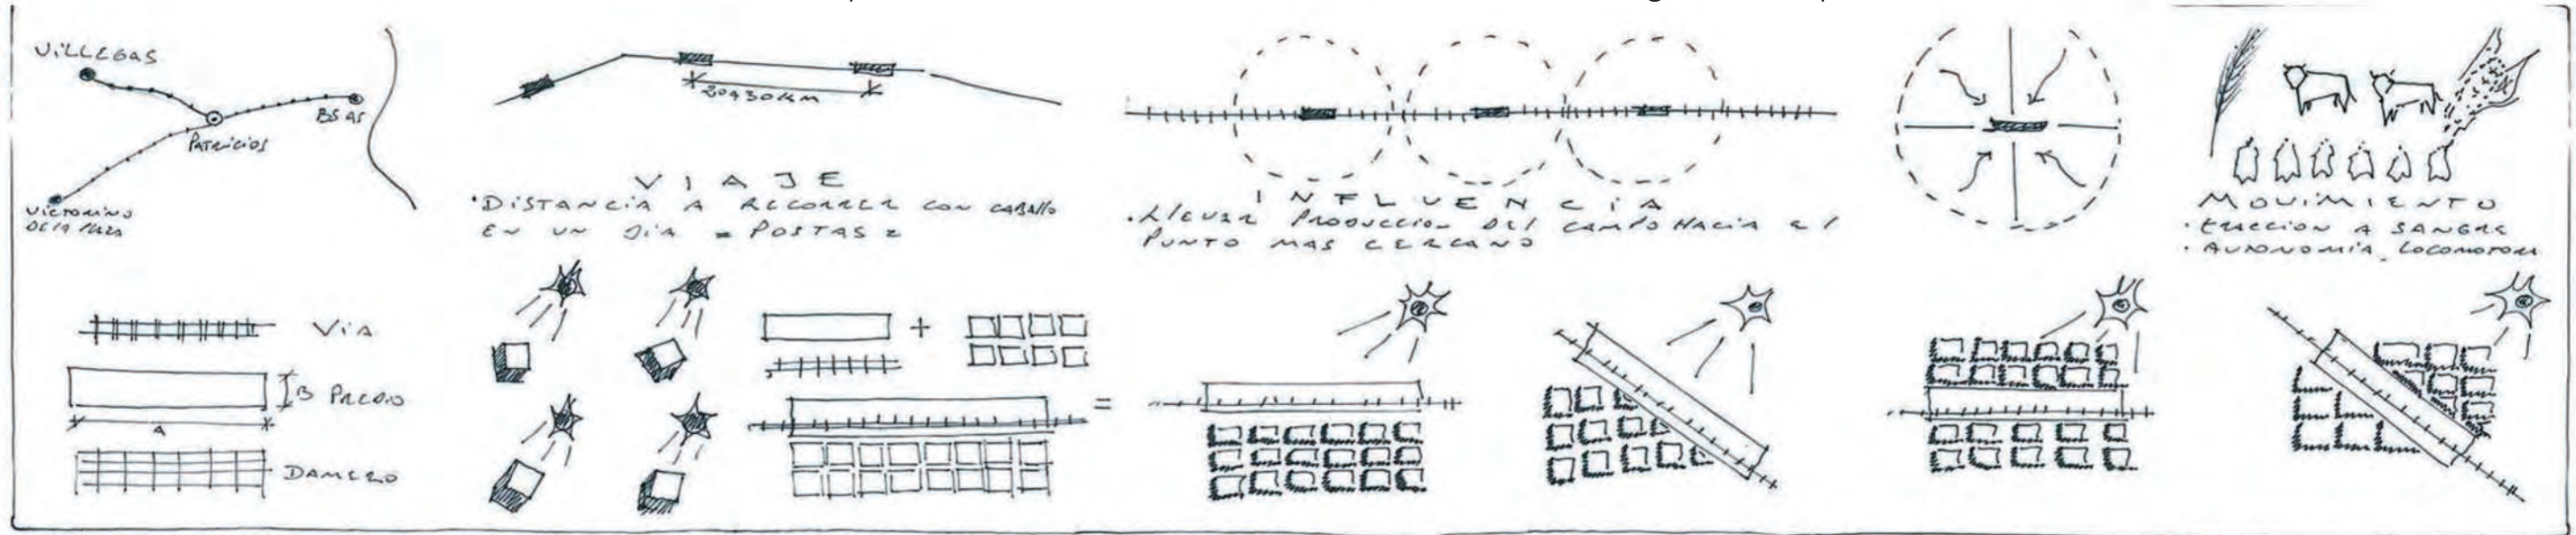 VILLEGAS
BS AS
PATRICIOS
VICTORINO
DE LA PLAZA
20 A 30 KM
VIAJE
• DISTANCIA A RECORRER CON CABALLO
EN UN DIA = POSTAS
INFLUENCIA
• LLEVAR PRODUCCION DEL CAMPO HACIA EL
PUNTO MAS CERCANO
MOVIMIENTO
• TRACCION A SANGRE
• AUTONOMÍA LOCOMOTORA
VIA
B PREDIO
A
DAMERO
+
=